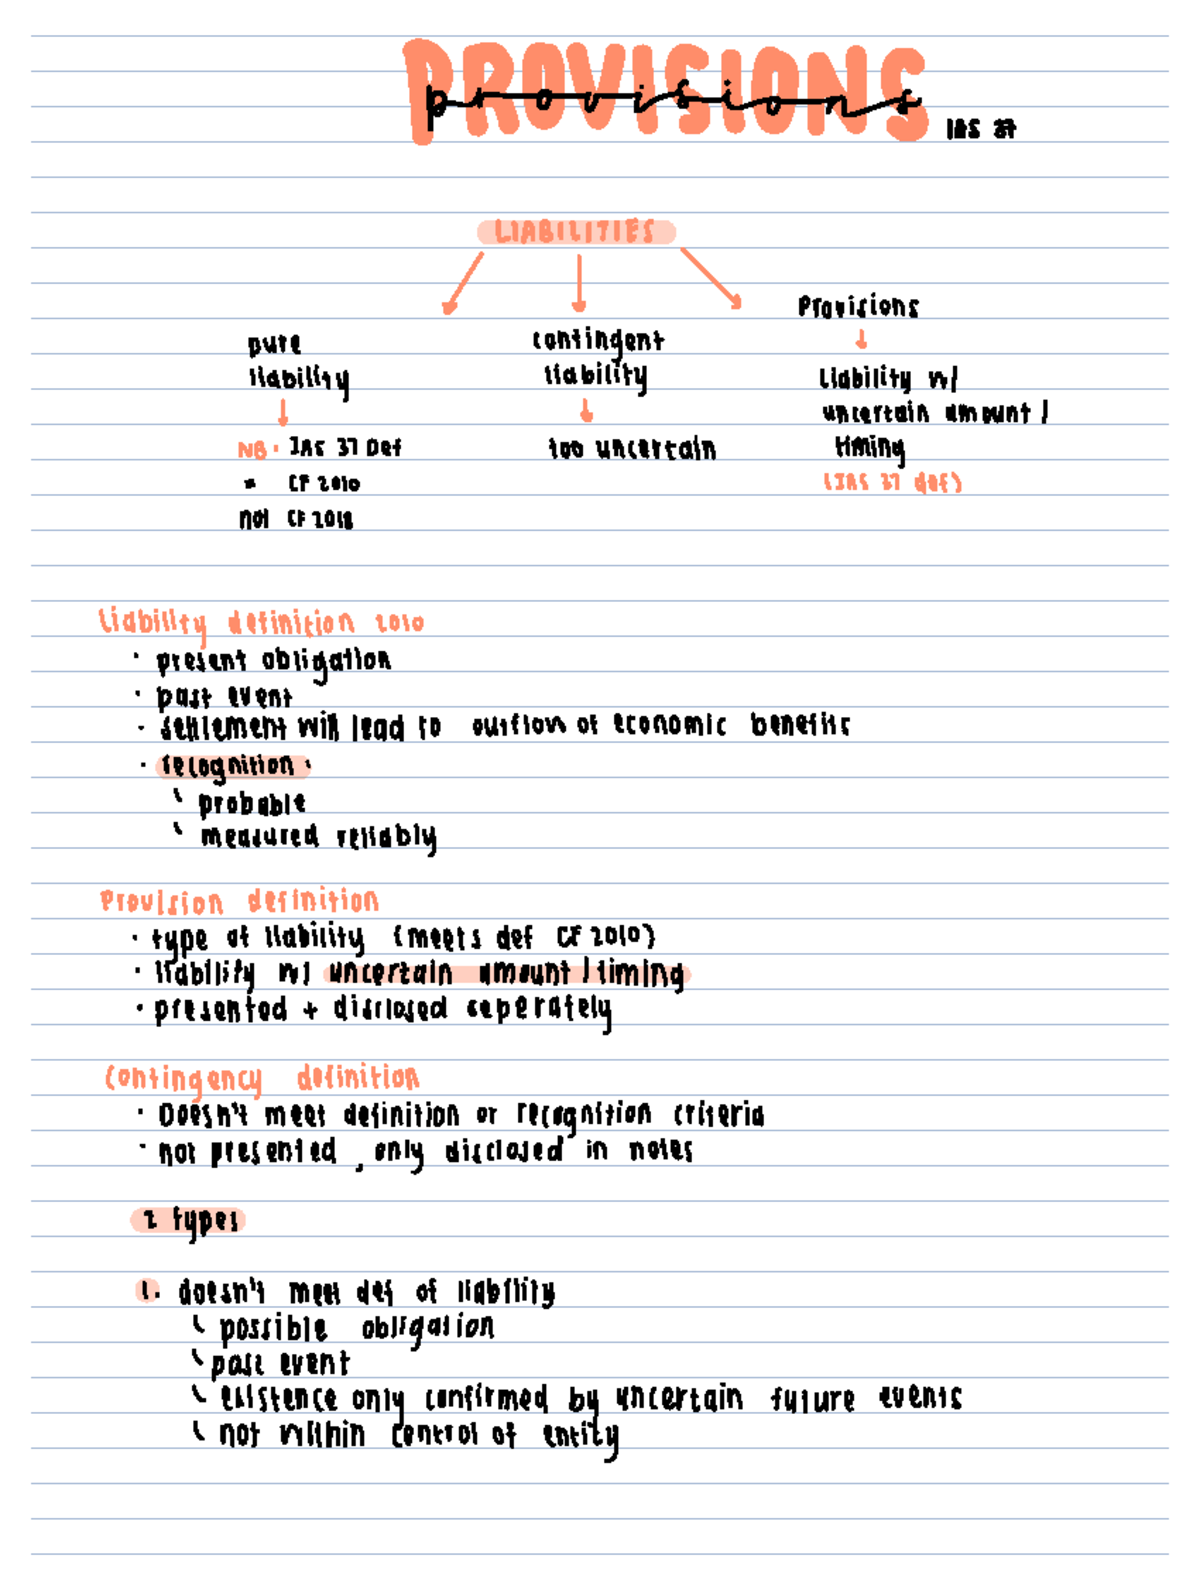 PROVISIONS
provisions
IAS 37
LIABILITIES
pure
liability
NB. IAS 37 Def
= CF 2010
not CF 2018
contingent
liability
too uncertain
Provisions
Liability w/
uncertain amount /
timing
(IAS 37 def)
Liability definition 2010
· present obligation
· past event
· settlement will lead to outflow of economic benefits
· recognition ·
probable
measured reliably
Provision definition
· type of liability (meets def CF 2010)
· liability w/ uncertain amount / timing
· presented + disclosed seperately
Contingency definition
· Doesn't meet definition or recognition criteria
· not presented, only disclosed in notes
2 types
1. doesn't meet def of liability
possible obligation
past event
existence only confirmed by uncertain future events
not within control of entity